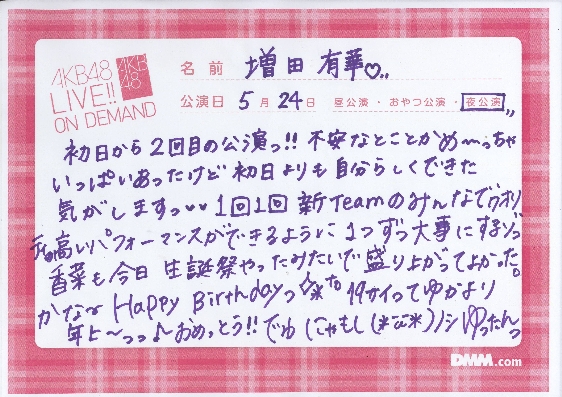 AKB48
LIVE!!
ON DEMAND
AKB
48
名前 増田有華♡..
公演日 5月24日 昼公演・おやつ公演・夜公演
初日から2回目の公演っ!! 不安なとことかめ〜っちゃ
いっぱいあったけど初日よりも自分らしくできた
気がしますっ 1回1回新Teamのみんなでクオリ
高いパフォーマンスができるように1つずつ大事にするゾっ
香菜も今日生誕祭やったみたいで盛り上がってよかった。
かな〜Happy Birthdayっ 19サイってゆかより
年上〜っっ♪おめっとう!! でゅ(こゃもし(* *))シ ゆったんっ
DMM.com